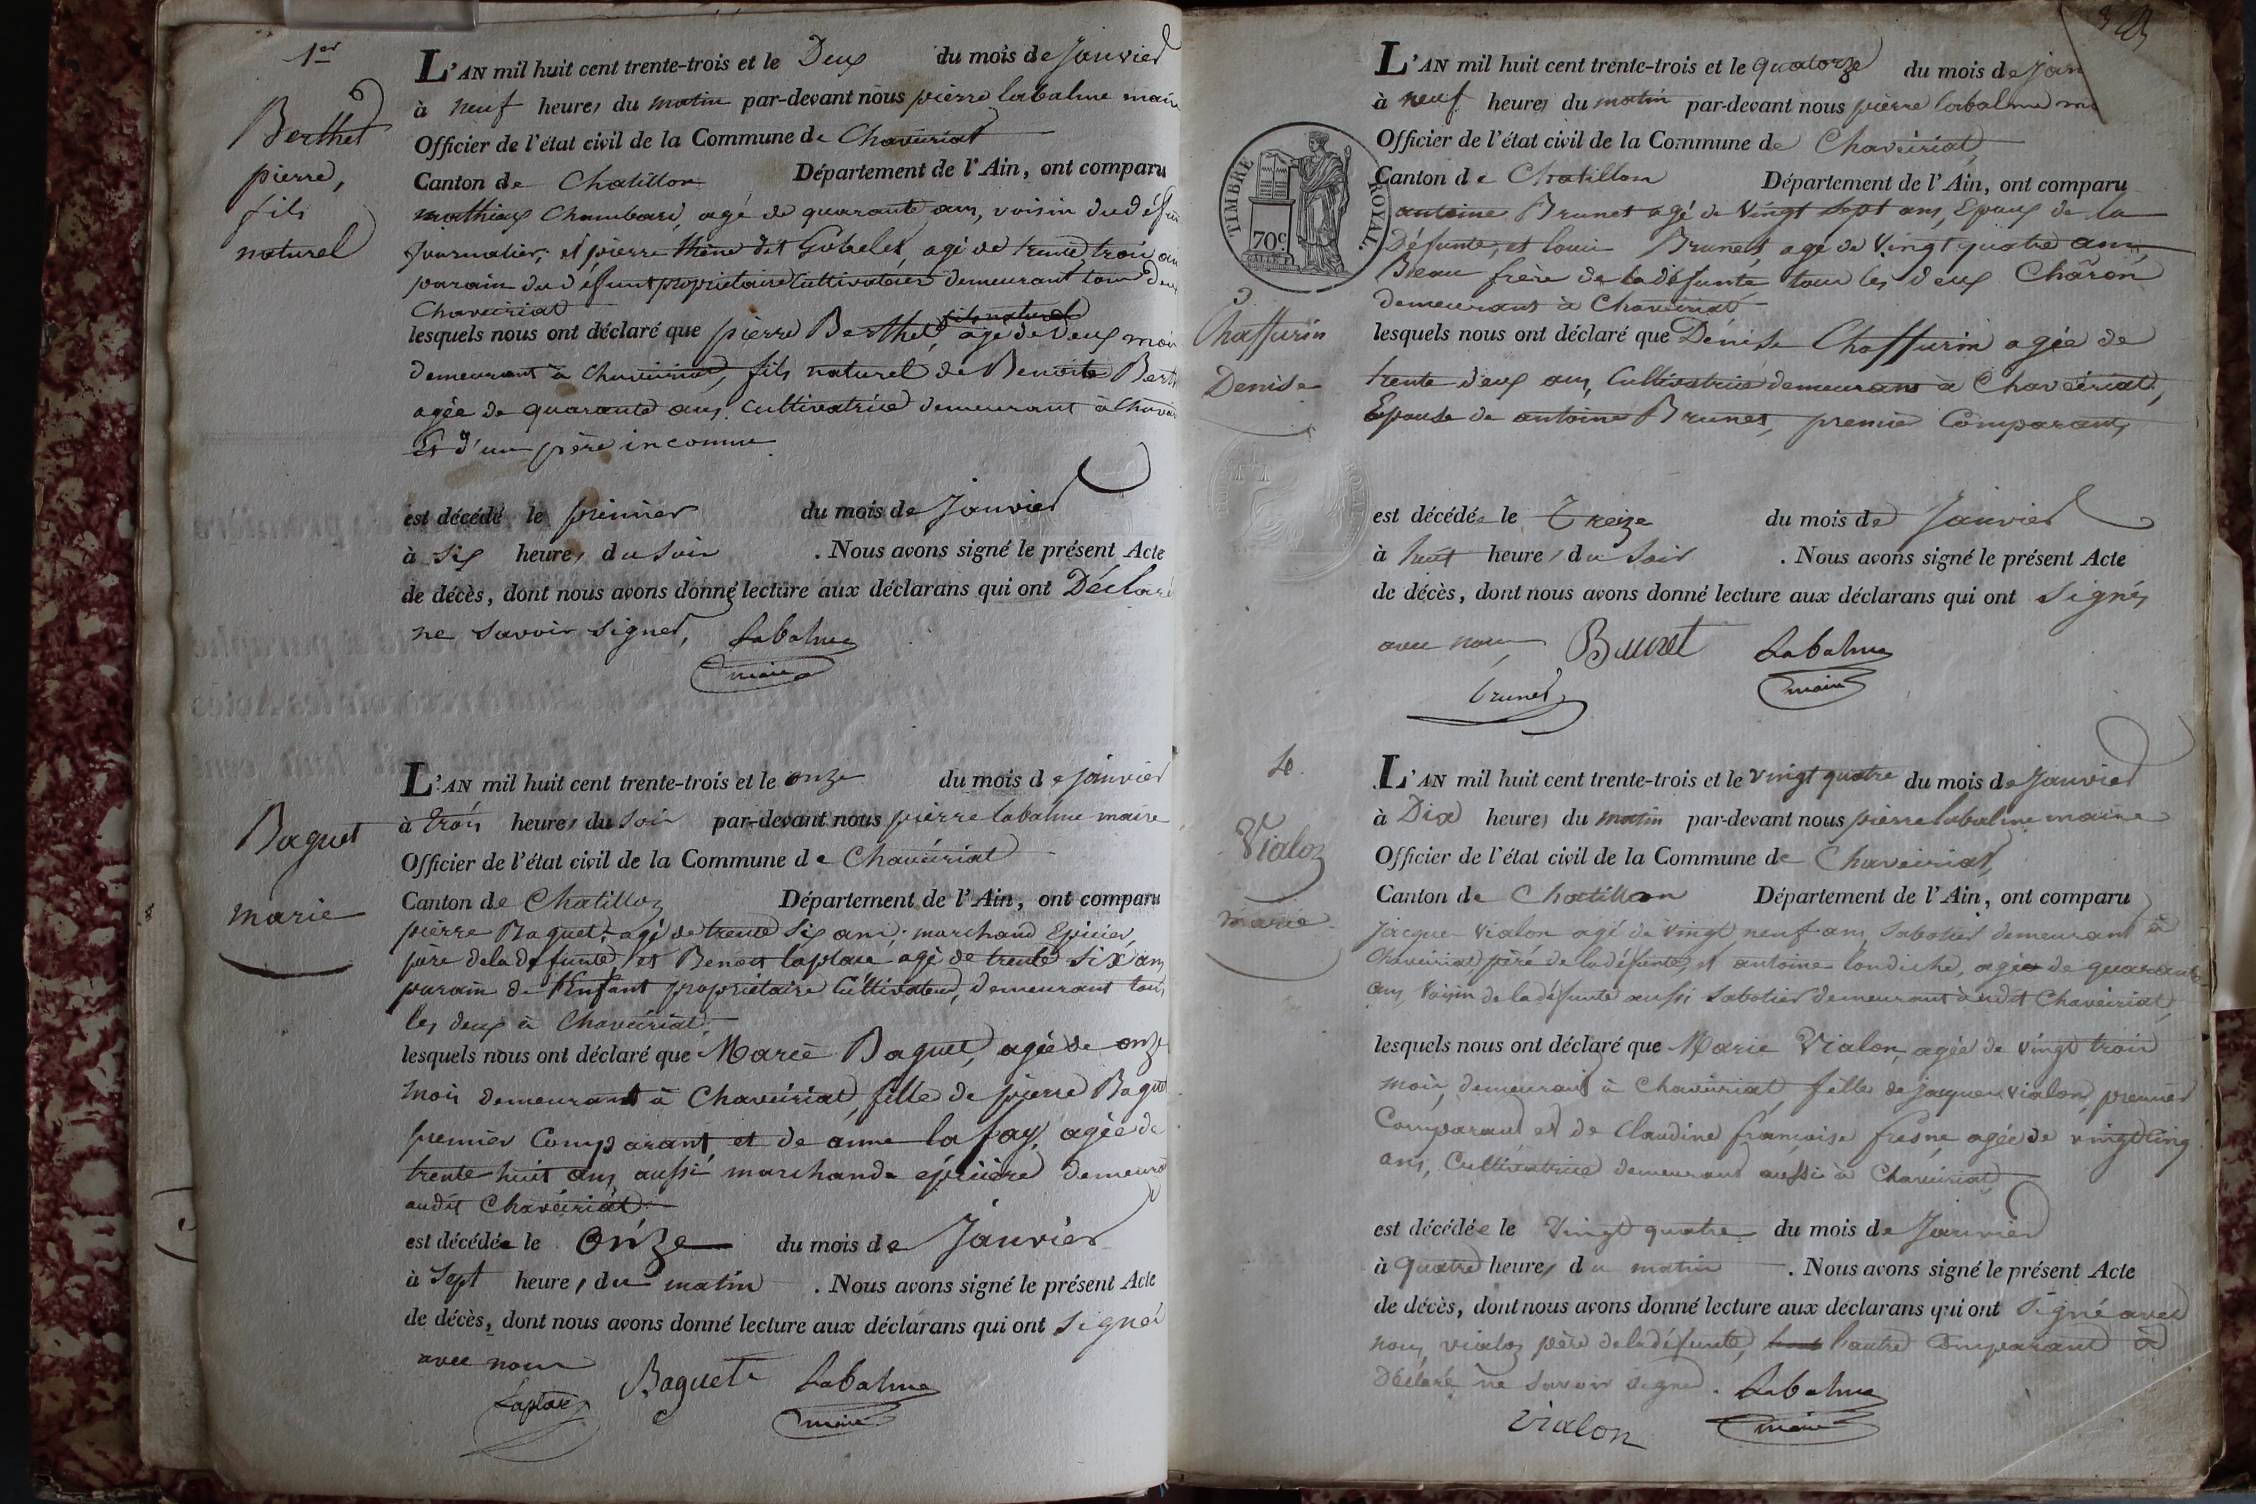 1er
Berthet
pierre,
fils
naturel
L'AN mil huit cent trente-trois et le Deux du mois de Janvier
à neuf heures du matin par-devant nous pierre labalme maire
Officier de l'état civil de la Commune de Chaveiriat
Canton de Chatillon Département de l'Ain, ont comparu
mathieu Chambard, agé de quarante ans, voisin du défunt
journalier, et pierre dit Gobelet, agé de trente trois ans
parain du défunt propriétaire Cultivateur demeurant tous deux
Chaveiriat
lesquels nous ont déclaré que pierre Berthet, agé de Deux mois
demeurant à Chaveiriat, fils naturel de Benoite Berth
agée de quarante ans, Cultivatrice demeurant à Chavei
Et d'un père inconnu
est décédé le premier du mois de Janvier
à six heures du soir . Nous avons signé le présent Acte
de décès, dont nous avons donné lecture aux déclarans qui ont Déclaré
ne savoir signer, Labalme
maire
Baquet
marie
L'AN mil huit cent trente-trois et le onze du mois de janvier
à trois heures du soir par-devant nous pierre labalme maire
Officier de l'état civil de la Commune de Chaveiriat
Canton de Chatillon Département de l'Ain, ont comparu
pierre Baquet, agé de trente six ans, marchand Epicier,
père de la defunte, et Benoit laplace agé de trente six ans
parain de l'Enfant propriétaire Cultivateur, demeurant tous
les deux à Chaveiriat
lesquels nous ont déclaré que Marie Baquet, agée de onze
mois demeurant à Chaveiriat, fille de pierre Baquet
premier Comparant, et de anne la fay, agée de
trente huit ans, aussi marchande épicière demeurt
audit Chaveiriat
est décédée le onze du mois de Janvier
à sept heures du matin . Nous avons signé le présent Acte
de décès, dont nous avons donné lecture aux déclarans qui ont signé
avec nous
Laplace Baquet Labalme
maire
3
L'AN mil huit cent trente-trois et le quatorze du mois de Jan
à neuf heures du matin par-devant nous pierre labalme
Officier de l'état civil de la Commune de Chaveiriat,
Canton de Chatillon Département de l'Ain, ont comparu
antoine Brunet agé de vingt sept ans, Epoux de la
Défunte, et louis Brunet, agé de vingt quatre ans,
Beau frère de la défunte tous les deux Châron
demeurant à Chaveiriat
TIMBRE ROYAL.
70c
3.
Chaffurin
Denise
lesquels nous ont déclaré que Denise Chaffurin agée de
trente deux ans, Cultivatrice demeurant à Chaveiriat,
Epouse de antoine Brunet, premier Comparant,
est décédée le Treize du mois de Janvier
à huit heures du soir . Nous avons signé le présent Acte
de décès, dont nous avons donné lecture aux déclarans qui ont signés
avec nous Brunet Labalme
brunet maire
4.
Vialon
marie
L'AN mil huit cent trente-trois et le vingt quatre du mois de Janvier
à Dix heures du matin par-devant nous pierre labalme maire
Officier de l'état civil de la Commune de Chaveiriat,
Canton de Chatillon Département de l'Ain, ont comparu
jacques Vialon agé de vingt neuf ans, sabotier demeurant à
Chaveiriat père de la défunte, et antoine londiche, agé de quarante
ans, voisin de la défunte aussi sabotier demeurant audit Chaveiriat,
lesquels nous ont déclaré que Marie Vialon, agée de vingt trois
mois, demeurant à Chaveiriat, fille de jacques vialon, premier
Comparant et de Claudine françoise fresne agée de vingt cinq
ans, Cultivatrice demeurant aussi à Chaveiriat,
est décédée le vingt quatre du mois de Janvier
à quatre heures du matin . Nous avons signé le présent Acte
de décès, dont nous avons donné lecture aux déclarans qui ont signé avec
nous, vialon père de la défunte, l'autre Comparant a
Déclaré ne savoir signer. Labalme
vialon maire